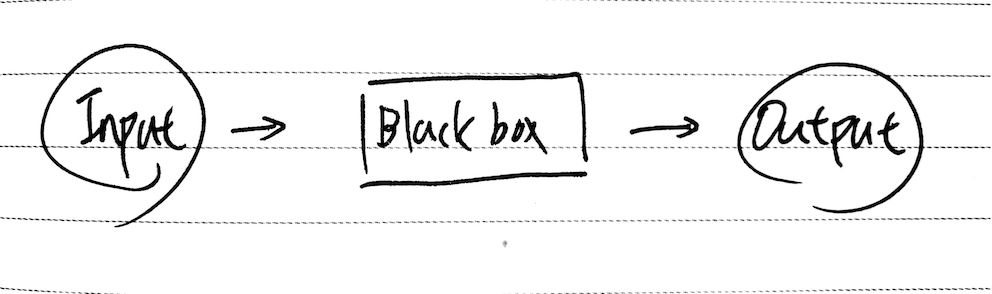 Input → Black box → Output